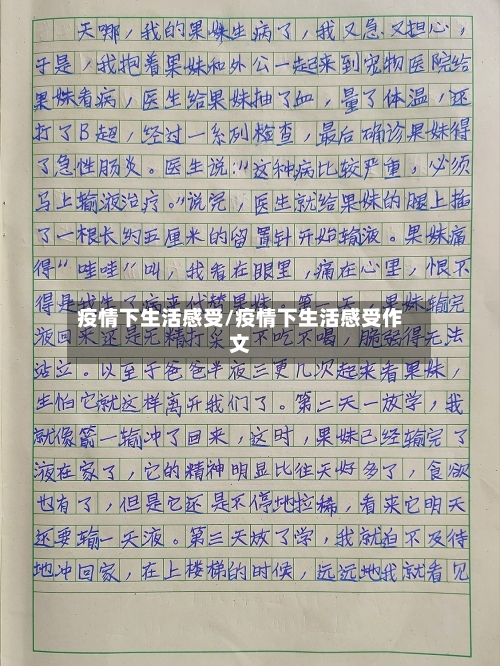 天哪，我的果妹生病了，我又急又担心，
于是，我抱着果妹和外公一起来到宠物医院给
果妹看病，医生给果妹抽了血，量了体温，还
打了B超，经过一系列检查，最后确诊果妹得
了急性肠炎。医生说："这种病比较严重，必须
马上输液治疗。"说完，医生就给果妹的腿上插
了一根长约五厘米的留置针开始输液。果妹痛
得"哇哇"叫，我看在眼里，痛在心里，恨不
得是我生了病来代替果妹。第一天，果妹输完
疫情下生活感受/疫情下生活感受作
文
液回来还是无精打采，不吃不喝，脆弱得无法
站立。以至于爸爸半夜三更几次起来看果妹，
生怕它就这样离开我们了。第二天一放学，我
就像箭一输冲了回来，这时，果妹已经输完了
液在家了，它的精神明显比往天好多了，食欲
也有了，但是它还是不停地拉稀，看来它明天
还要输一天液。第三天放了学，我就迫不及待
地冲回家，在上楼梯的时候，远远地我就看见